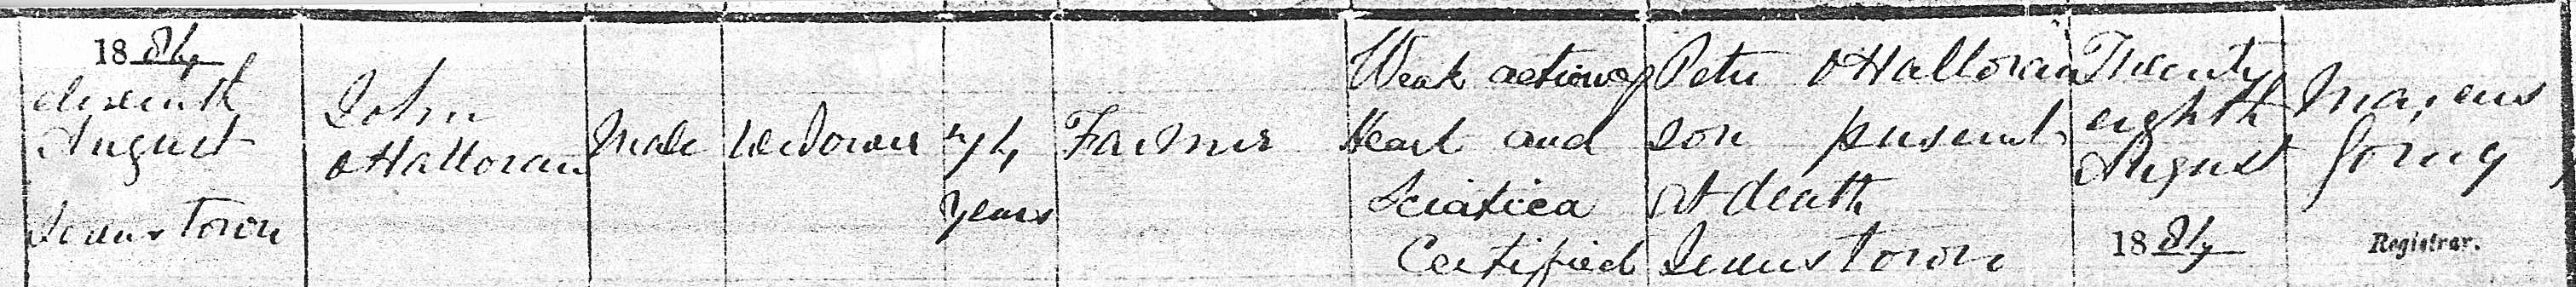 1884
August
John
O'Halloran
Male
Widower
74
years
Farmer
Weak action of
Heart and
Sciatica
Certified
Peter O'Halloran
son present
at death
Twenty
eighth
August
1884
Marcus
Registrar.